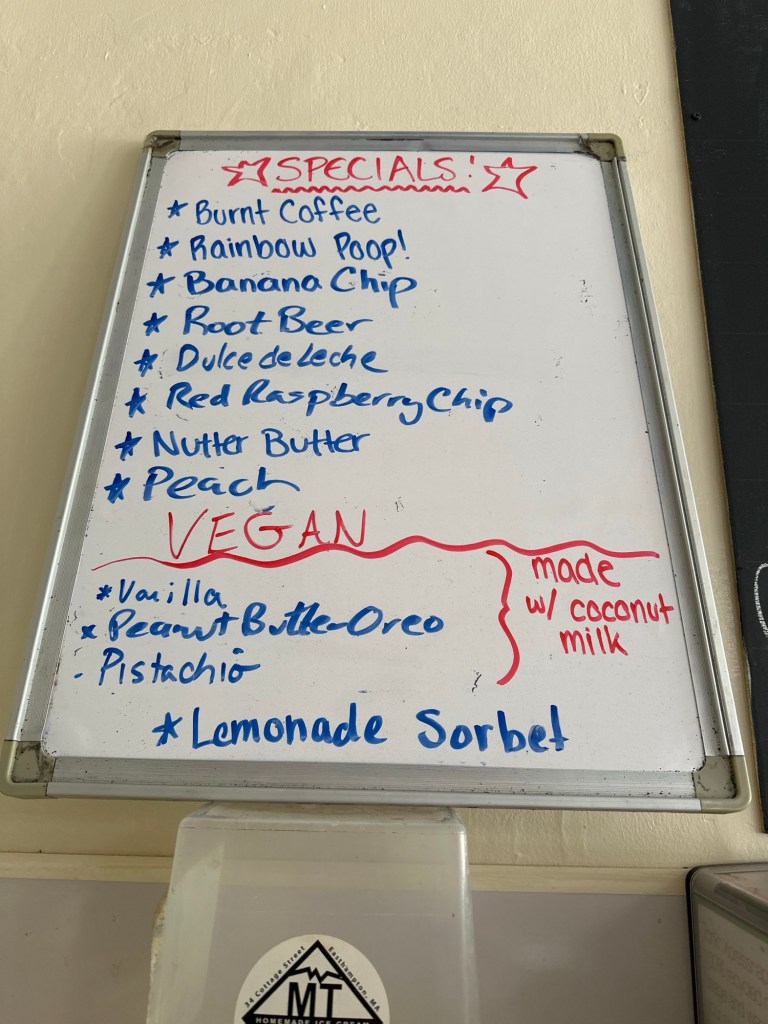 SPECIALS!
* Burnt Coffee
* Rainbow Poop!
* Banana Chip
* Root Beer
* Dulce de Leche
* Red Raspberry Chip
* Nutter Butter
* Peach
VEGAN
* Vanilla
* Peanut Butter Oreo
- Pistachio
made
w/ coconut
milk
* Lemonade Sorbet
34 Cottage Street Easthampton, MA
MT
HOMEMADE ICE CREAM